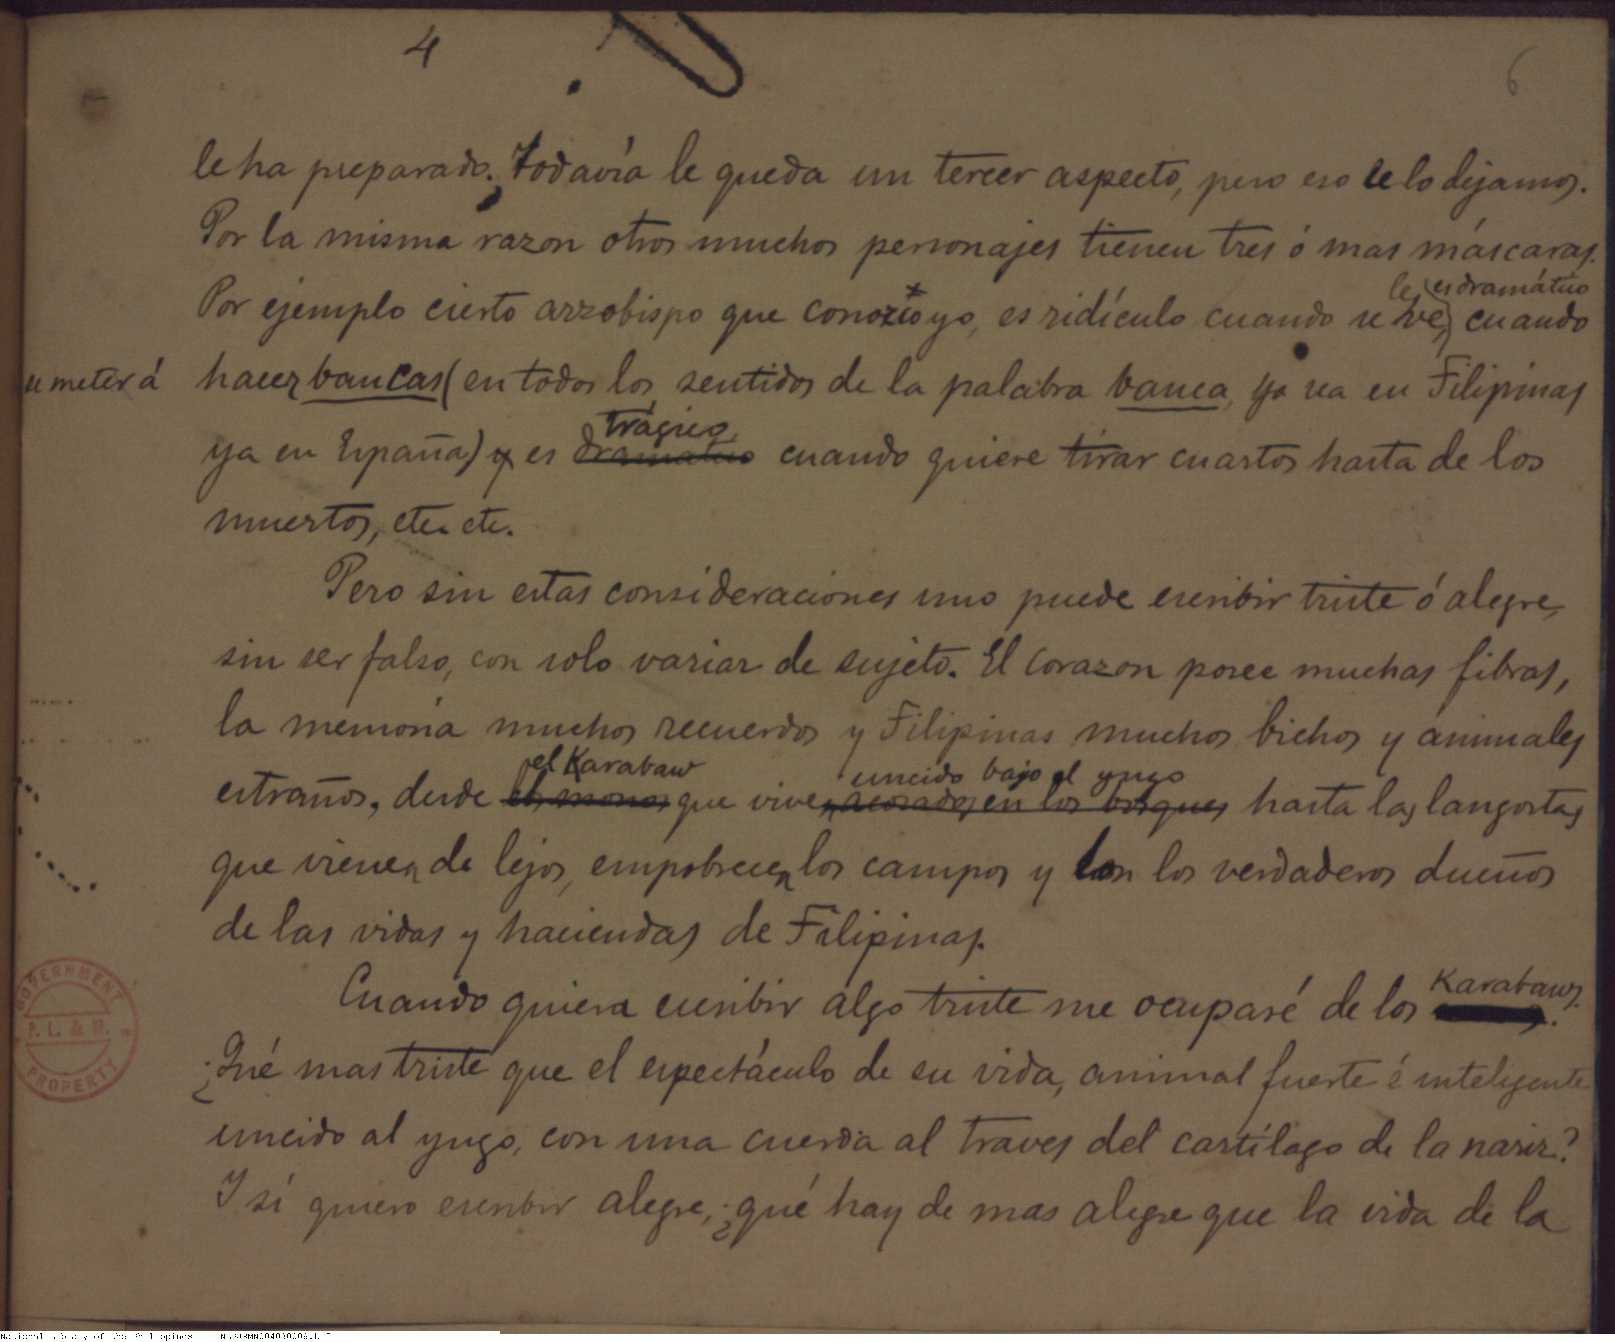 4
6
le ha preparado. Todavía le queda un tercer aspecto, pero eso se lo dejamos.
Por la misma razon otros muchos personajes tienen tres ó mas máscaras.
le es dramático
Por ejemplo cierto arzobispo que conozco yo, es ridículo cuando se ve, cuando
se meter á hacer bancas (en todos los sentidos de la palabra banca, ya sea en Filipinas
trágico
ya en España) y es dramatico cuando quiere tirar cuartos hasta de los
muertos, etc. etc.
Pero sin estas consideraciones uno puede escribir triste ó alegre,
sin ser falso, con solo variar de sujeto. El corazon posee muchas fibras,
la memoria muchos recuerdos y Filipinas muchos bichos y animales
el Karabaw uncido bajo el yugo
estraños, desde los monos que viven acosados en los bosques hasta las langostas
que vienen de lejos, empobrecen los campos y son los verdaderos dueños
de las vidas y haciendas de Filipinas.
Karabaws.
Cuando quiera escribir algo triste me ocuparé de los
¿Qué mas triste que el espectáculo de su vida, animal fuerte é inteligente
uncido al yugo, con una cuerda al traves del cartílago de la nariz?
Y sí quiero escribir alegre, ¿qué hay de mas alegre que la vida de la
GOVERNMENT
P. L. & M.
PROPERTY
National Library of the Philippines